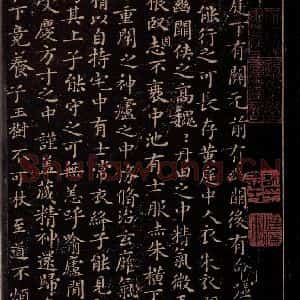 庭下有關元前有幽闕後有命
能行之可長存黄庭中人衣朱衣
幽闕俠之高魏〻丹田之中精氣微玉
根堅志不衰中池有士服赤朱横下
重閉之神廬之中務脩治玄膺氣
精以自持宅中有士常衣絳子能見
其上子能守之可無恙呼噏廬間
受慶方寸之中謹蓋藏精神還歸
下竟養子玉樹不可杖至道不煩
Shufawang.CN